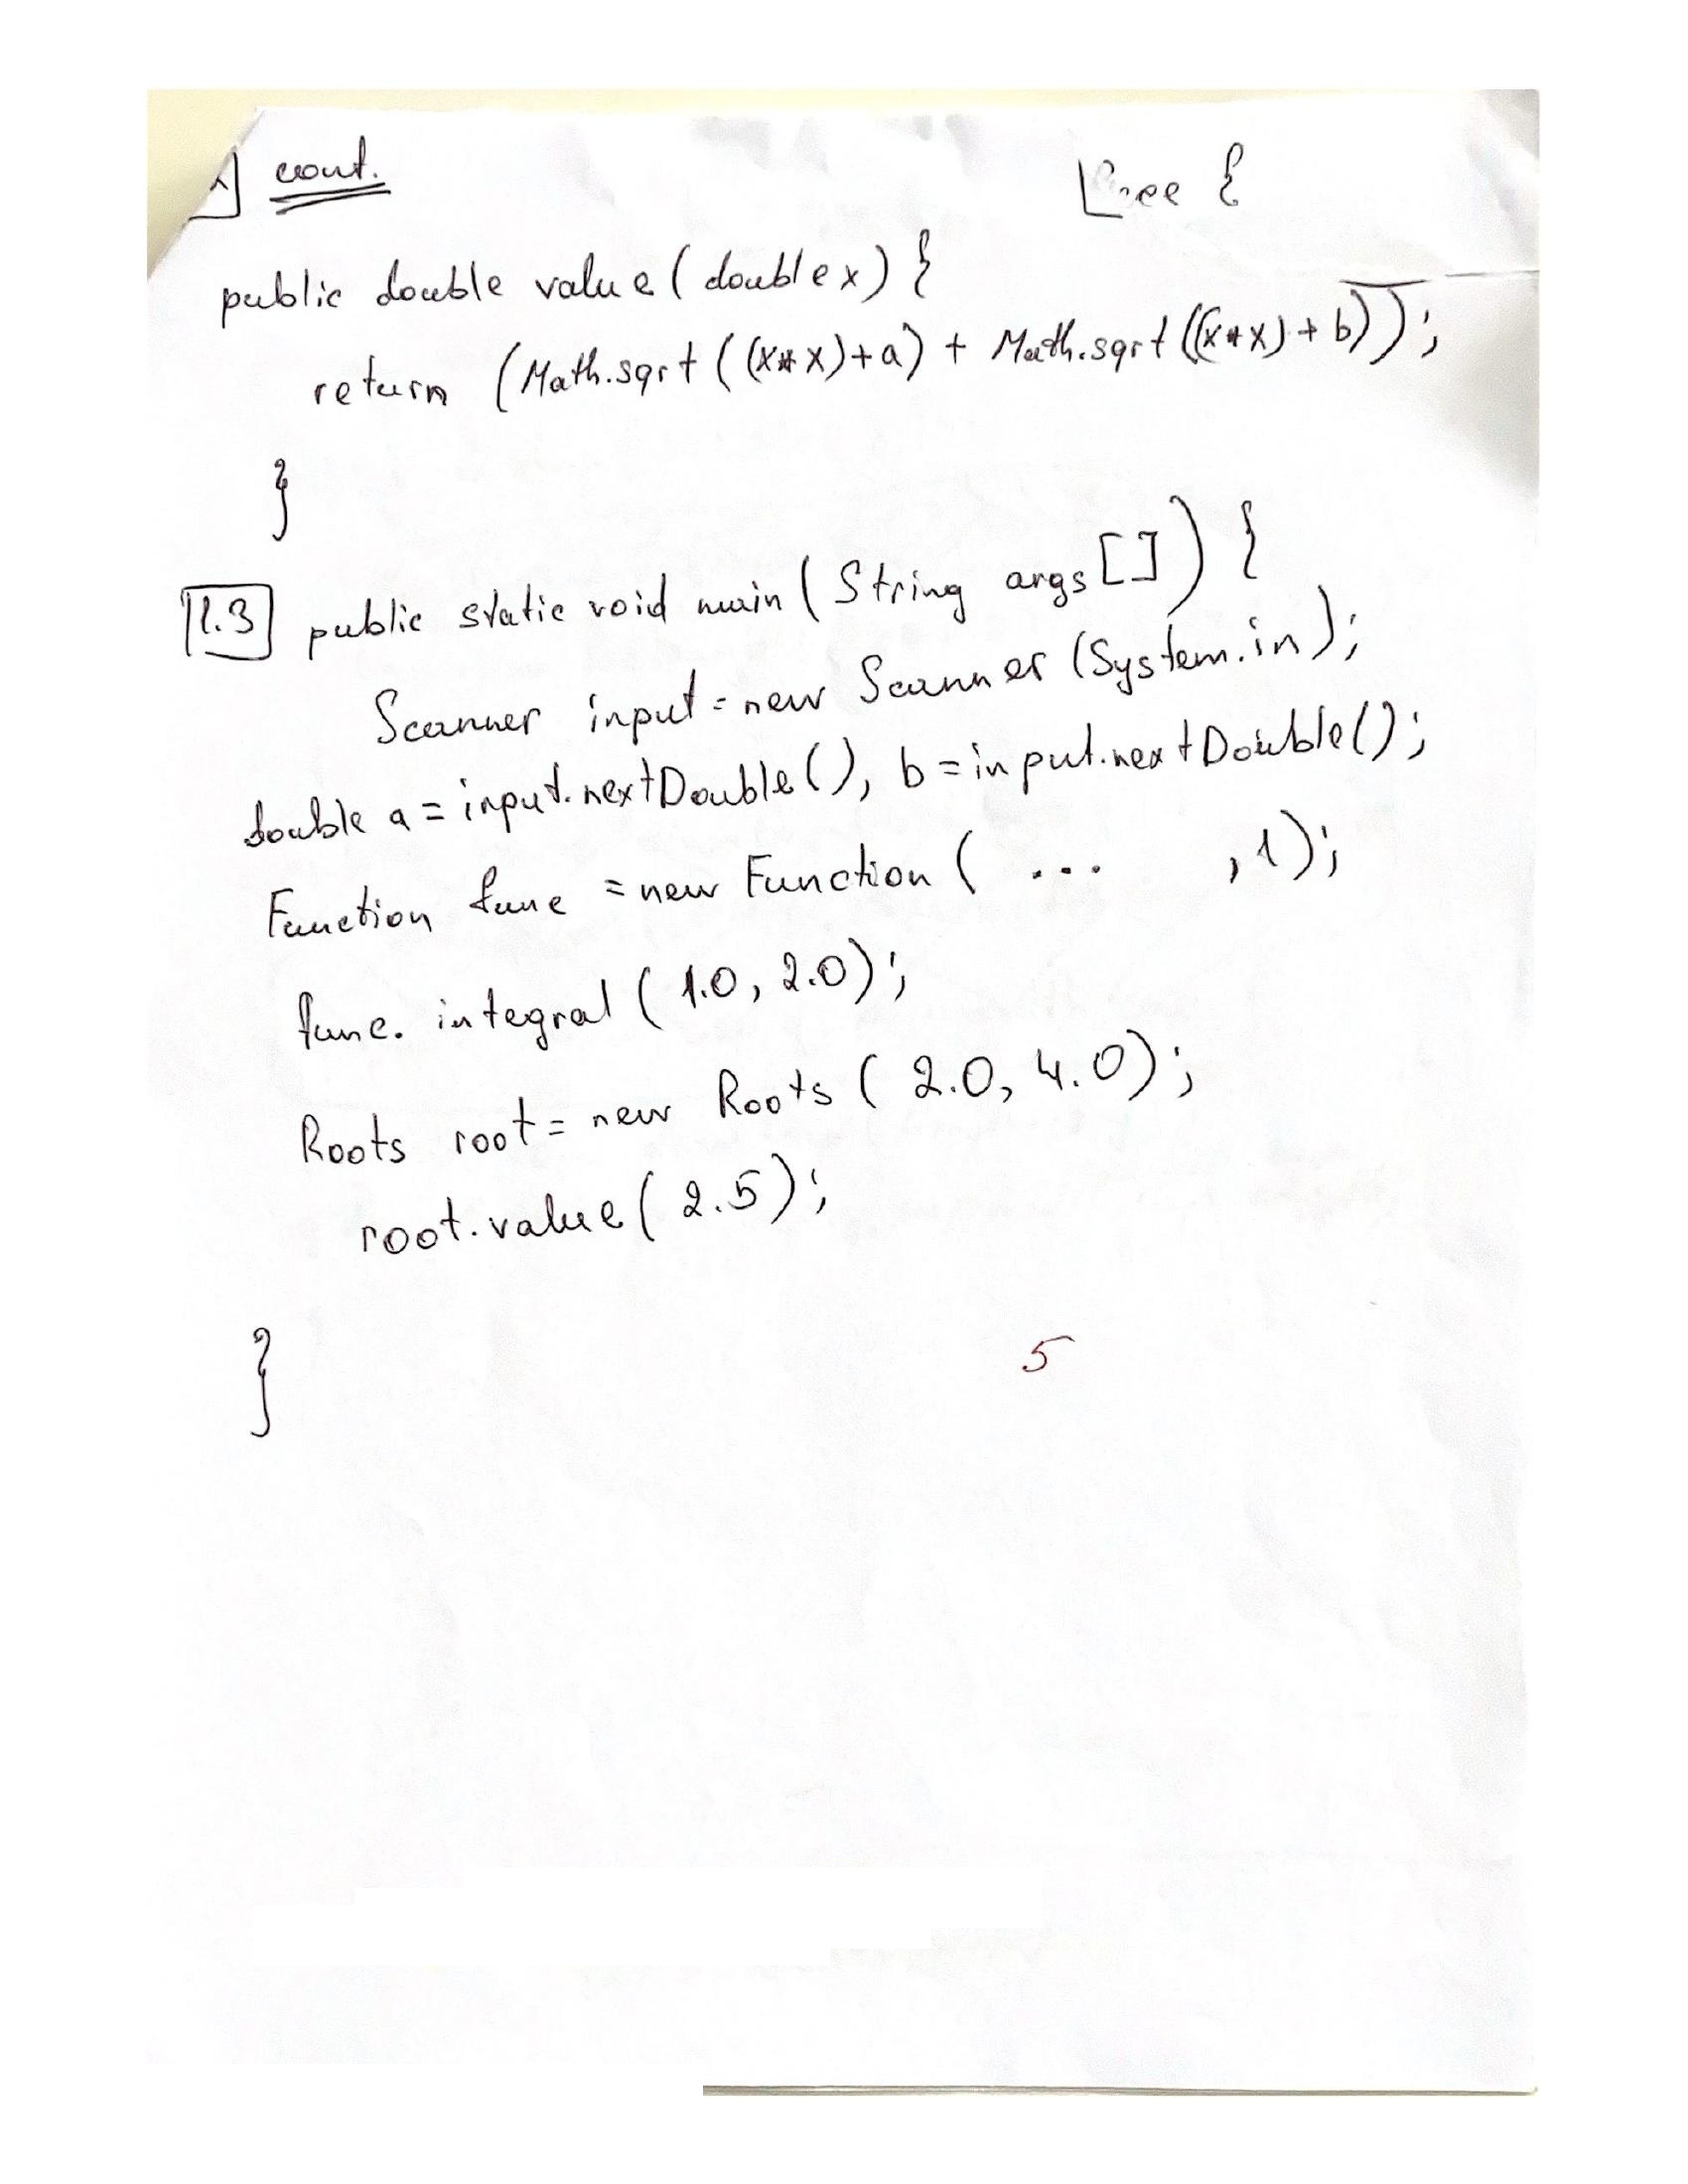 cont.
{
public double value (double x) {
return (Math.sqrt ((x*x)+a) + Math.sqrt ((x*x)+b));
}
11.3 public static void main (String args []) {
Scanner input = new Scanner (System.in);
double a = input.nextDouble(), b = input.nextDouble();
Function func = new Function ( ... ,1);
func. integral ( 1.0, 2.0);
Roots root = new Roots ( 2.0, 4.0);
root.value ( 2.5);
}
5